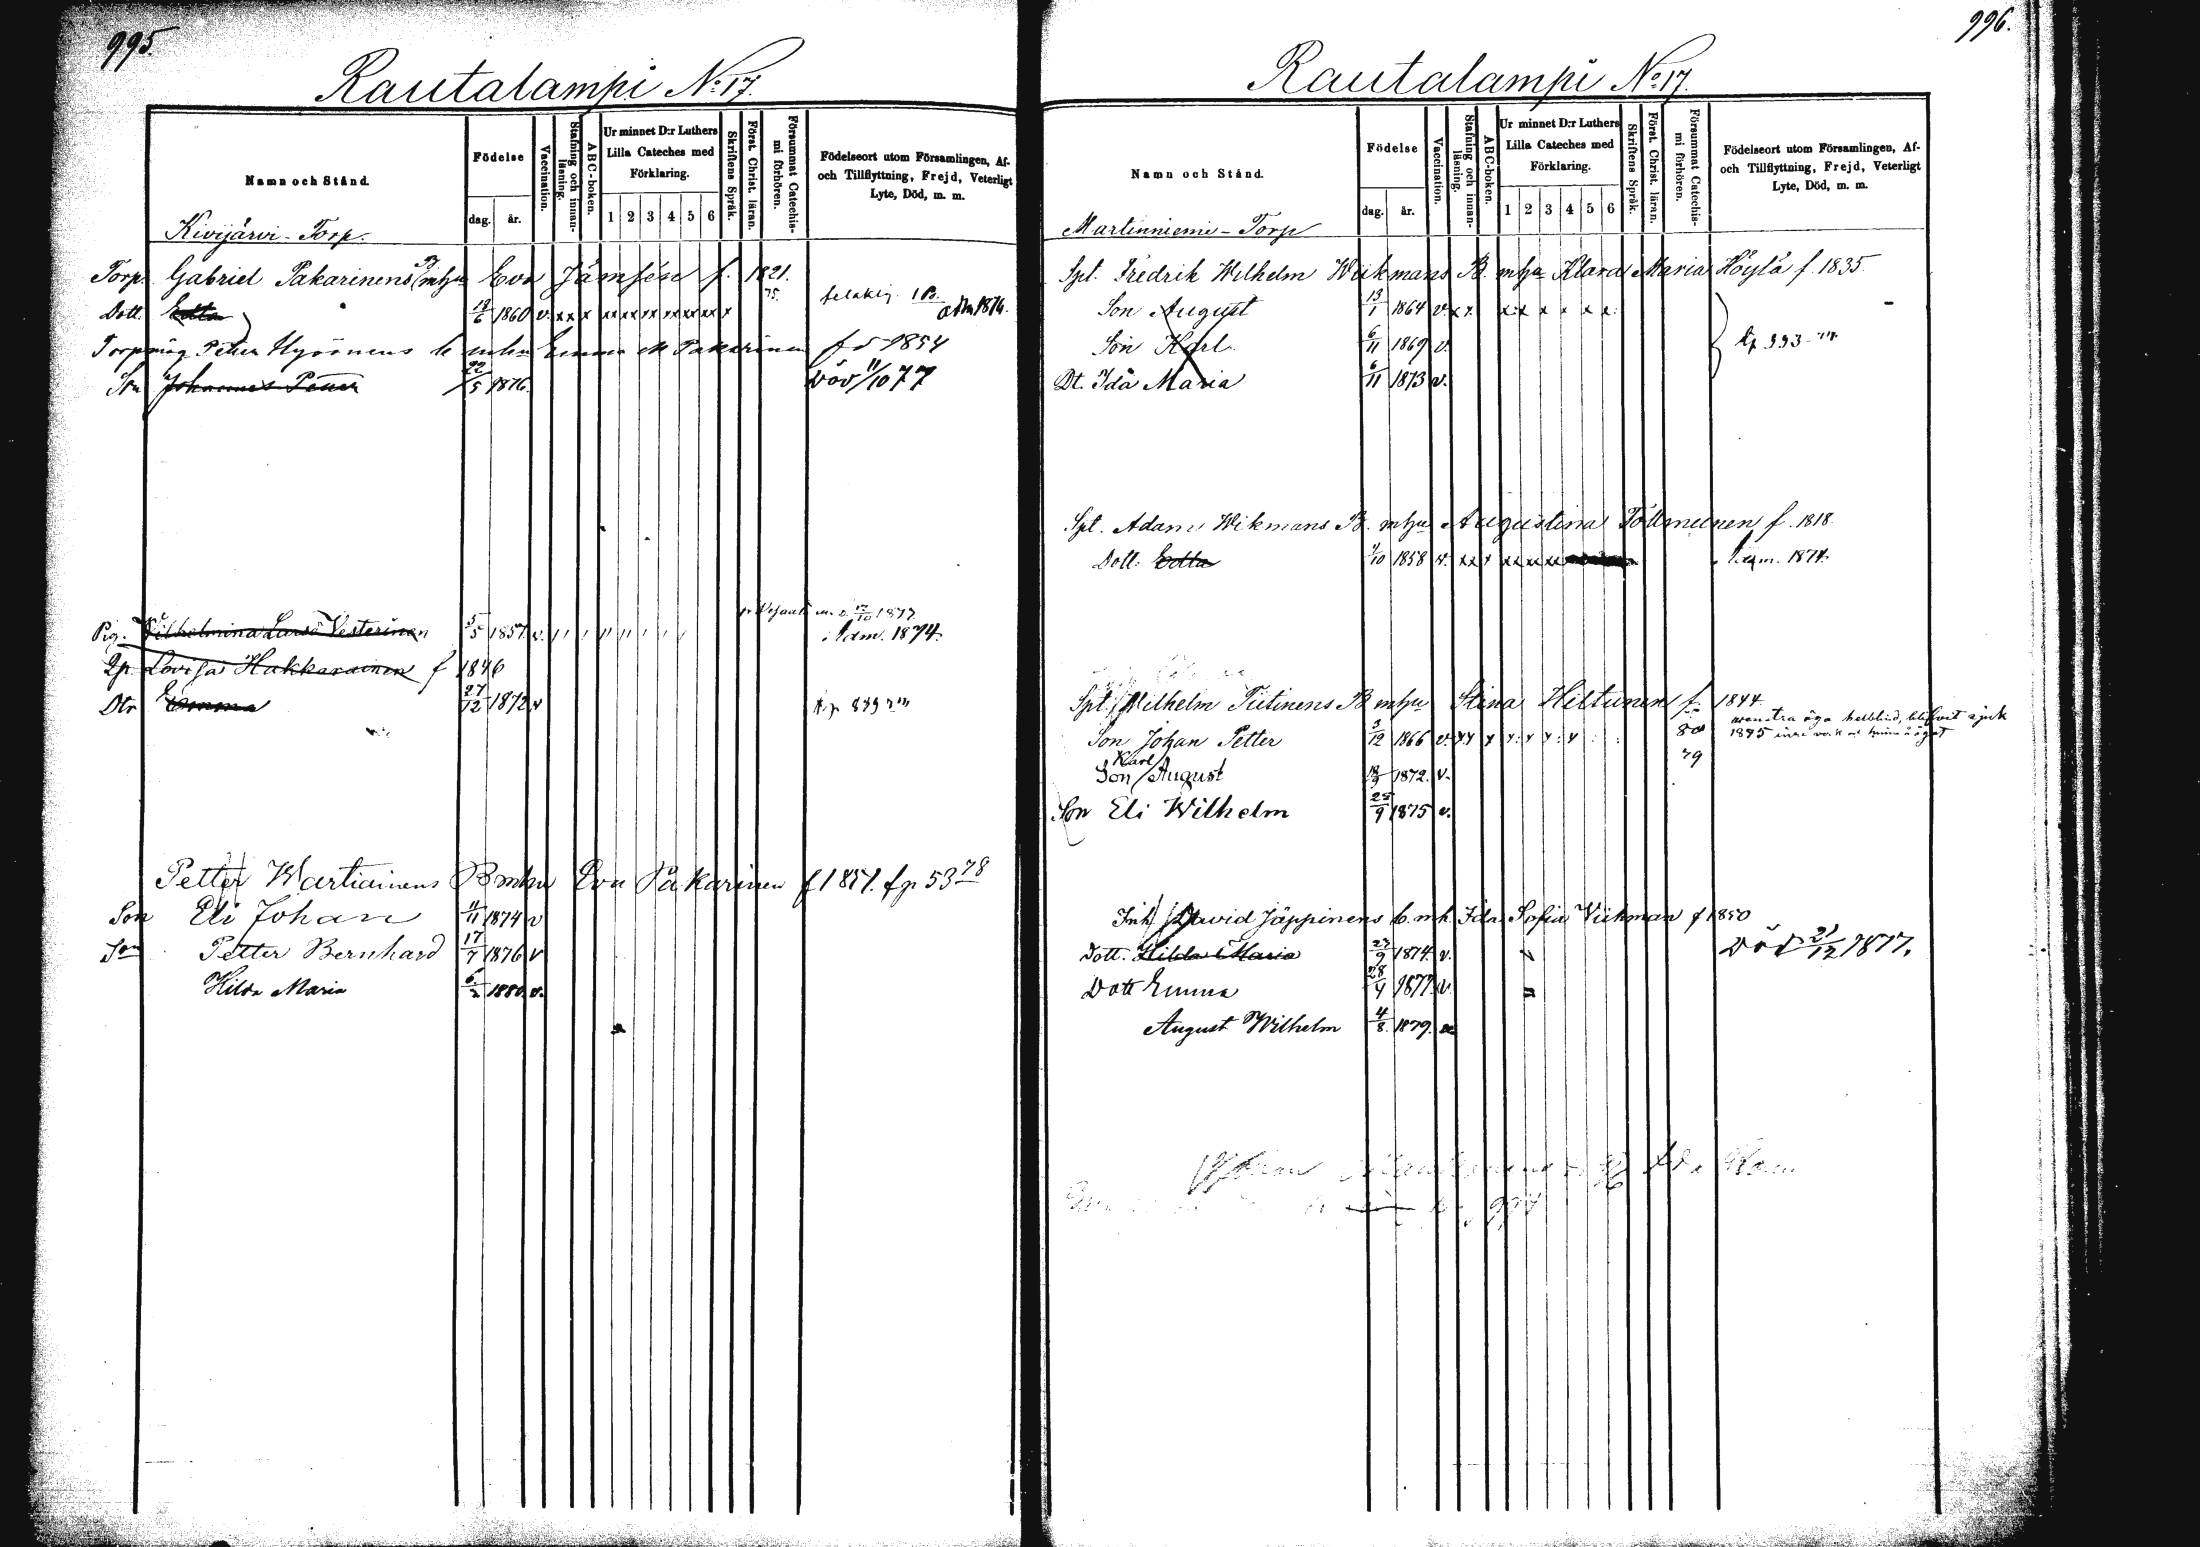 995.
Rautalampi No: 17.
Namn och Stånd.
Födelse
dag.
år.
Vaccination.
Stafning och innan-
läsning.
ABC-boken.
Ur minnet D:r Luthers
Lilla Cateches med
Förklaring.
1 2 3 4 5 6
Skriftens Språk.
Först. Christ. läran.
Försummat Catechis-
mi förhören.
Födelseort utom Församlingen, Af-
och Tillflyttning, Frejd, Veterligt
Lyte, Död, m. m.
Kivijärvi - Torp.
Torp. Gabriel Pakarinens B mhu Eva Jämsén f. 1821.
75.
Dott. Edla 1860 v. xx x xx xx xx xx xx xx x adm 1876.
Torpmåg Petter Hyvönens b mhu Emma M Pakarinen f 1854
Son Johannes Petter 22/5 1876. Död 11/10 77
12/10 1877
Pig. Vilhelmina Lovisa Vesterinen 5/5 1857 v. Adm. 1874.
Lovisa Hakkarainen f 1846
Dtr Emma 27/12 1872 v
Petter Wartiainens B mhu Eva Pakarinen f 1851. fp 53 78
Son Eli Johan 4/11 1874 v
Son Petter Bernhard 17/7 1876 v
Hilda Maria 6/2 1880. v.
996.
Rautalampi No: 17.
Namn och Stånd.
Födelse
dag.
år.
Vaccination.
Stafning och innan-
läsning.
ABC-boken.
Ur minnet D:r Luthers
Lilla Cateches med
Förklaring.
1 2 3 4 5 6
Skriftens Språk.
Först. Christ. läran.
Försummat Catechis-
mi förhören.
Födelseort utom Församlingen, Af-
och Tillflyttning, Frejd, Veterligt
Lyte, Död, m. m.
Martinniemi - Torp
Spt. Fredrik Wilhelm Wikmans B. mhu Klara Maria Höylä f. 1835.
Son August 13/1 1864 v. x x
Son Karl 6/11 1869 v.
Dt. Ida Maria 6/11 1873 v.
Spt. Adam Wikmans B. mhu Augustina f. 1818.
Dott. Edla 1/10 1858 v. xx x xx xx xx Adm. 1874.
Spt. Wilhelm Tiitinens B mhu Stina Hiltunen f. 1844.
wenstra öga helblind, sjuk
Son Johan Petter 3/12 1866 v. 80 1875
Son Karl August 1872. v. 79
Son Eli Wilhelm 25/9 1875 v.
Inh David Jäppinens b. mh. Ida Sofia Vikman f 1850
Dott. Hilda Maria 23/9 1874 v. Död 21/12 1877.
Dott Emma 28/4 1877. v.
August Wilhelm 4/8. 1879.